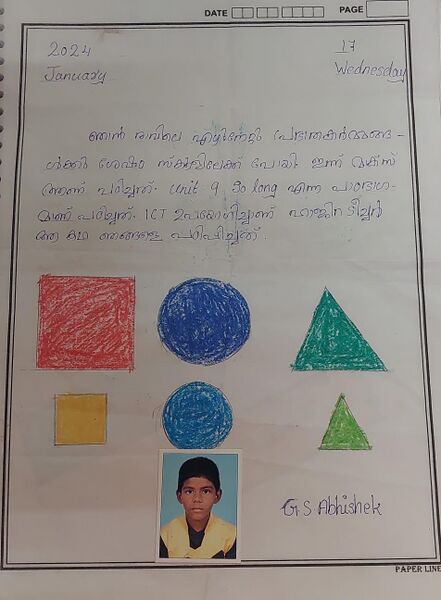 DATE PAGE
2024 17
January Wednesday
ഞാൻ രാവിലെ എഴുന്നേറ്റു പ്രഭാതകർമ്മങ്ങ-
ൾക്കു ശേഷം സ്കൂളിലേക്ക് പോയി ഇന്ന്
പഠിച്ചത്. Unit 9 So long എന്ന പാഠഭാഗ-
മാണ് പഠിച്ചത്. ICT ഉപയോഗിച്ചാണ് ടീച്ചർ
ഈ കഥ ഞങ്ങളെ പഠിപ്പിച്ചത്.
G.S Abhishek
PAPER LINE